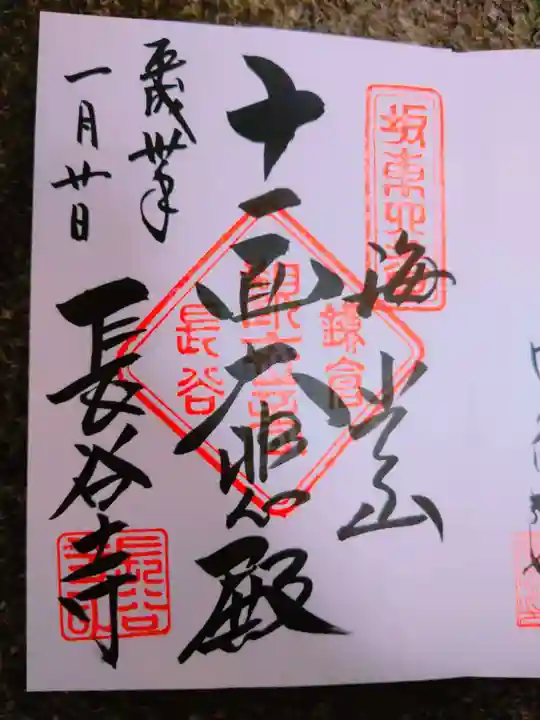 坂東四番
海光山
鎌倉
観世音
長谷
十一面大悲殿
平成卅年
一月廿日
長谷寺